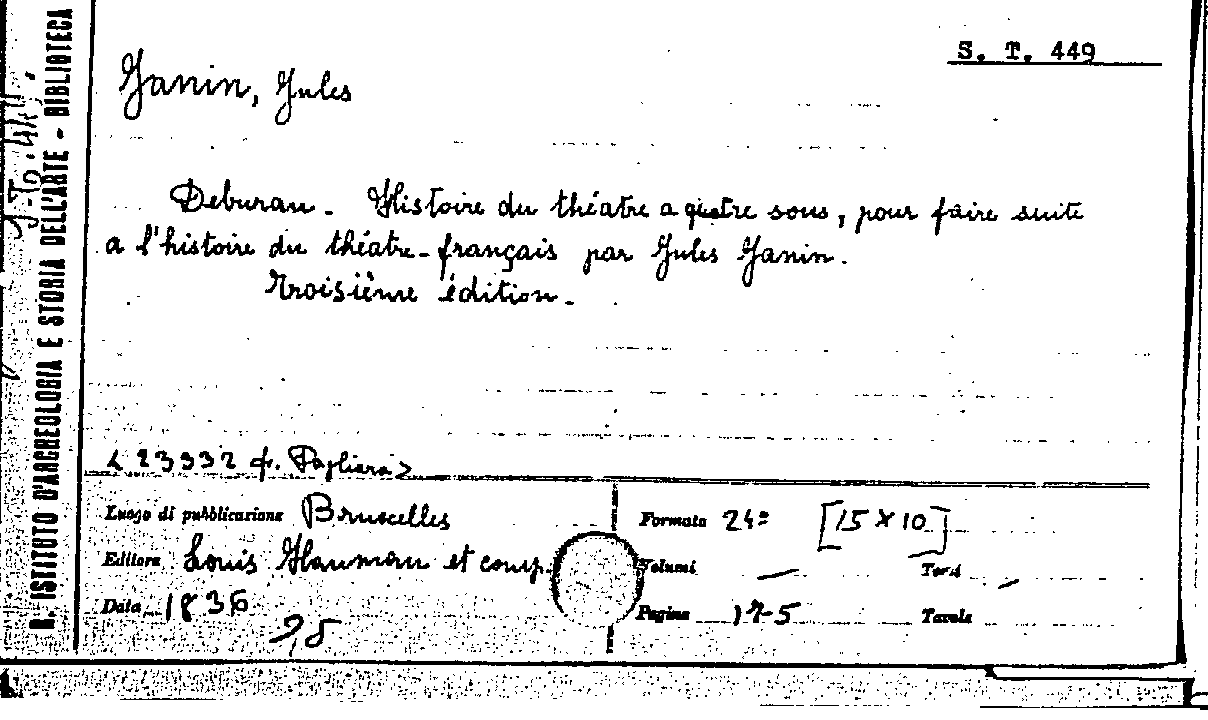 S. T. 449
Janin, Jules
Deburau. Histoire du théatre a quatre sous, pour faire suite
a l'histoire du théatre-français par Jules Janin.
Troisième édition.
< 23332 f. Pagliara >
Luogo di pubblicazione Bruxelles
Formato 24° [15 X 10]
Editore Louis Hauman et comp.
Volumi — Tomi —
Data 1836
Pagine 175 Tavole
R. ISTITUTO D'ARCHEOLOGIA E STORIA DELL'ARTE - BIBLIOTECA